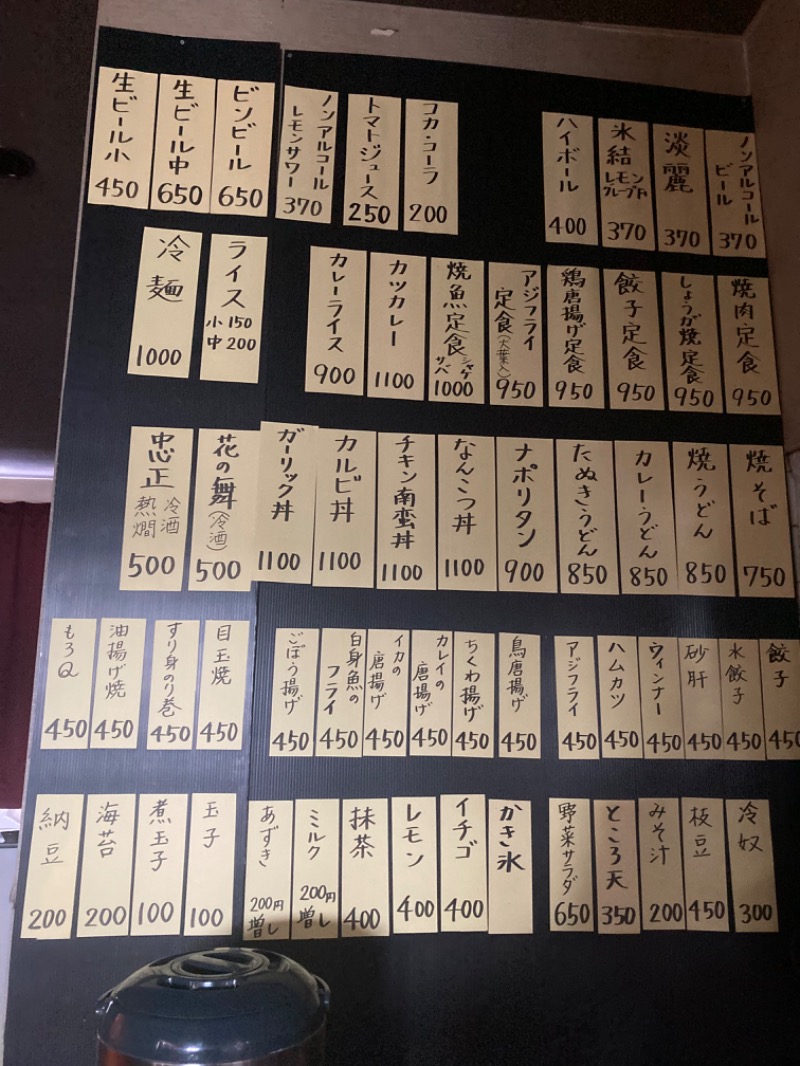 ノンアルコール
ビール
370
淡麗
370
氷結
レモン
グレープF
370
ハイボール
400
コカ・コーラ
200
トマトジュース
250
ノンアルコール
レモンサワー
370
ビンビール
650
生ビール中
650
生ビール小
450
焼肉定食
950
しょうが焼定食
950
餃子定食
950
鶏唐揚げ定食
950
アジフライ
定食(大葉入)
950
焼魚定食
シャケ
サバ
1000
カツカレー
1100
カレーライス
900
ライス
小150
中200
冷麺
1000
焼そば
750
焼うどん
850
カレーうどん
850
たぬきうどん
850
ナポリタン
900
なんこつ丼
1100
チキン南蛮丼
1100
カルビ丼
1100
ガーリック丼
1100
花の舞
(冷酒)
500
忠正
冷酒
熱燗
500
餃子
450
水餃子
450
砂肝
450
ウィンナー
450
ハムカツ
450
アジフライ
450
鳥唐揚げ
450
ちくわ揚げ
450
カレイの
唐揚げ
450
イカの
唐揚げ
450
白身魚の
フライ
450
ごぼう揚げ
450
目玉焼
450
すり身のり巻
450
油揚げ焼
450
もろQ
450
冷奴
300
枝豆
450
みそ汁
200
ところ天
350
野菜サラダ
650
かき氷
イチゴ
400
レモン
400
抹茶
400
ミルク
200円
増し
あずき
200円
増し
玉子
100
煮玉子
100
海苔
200
納豆
200